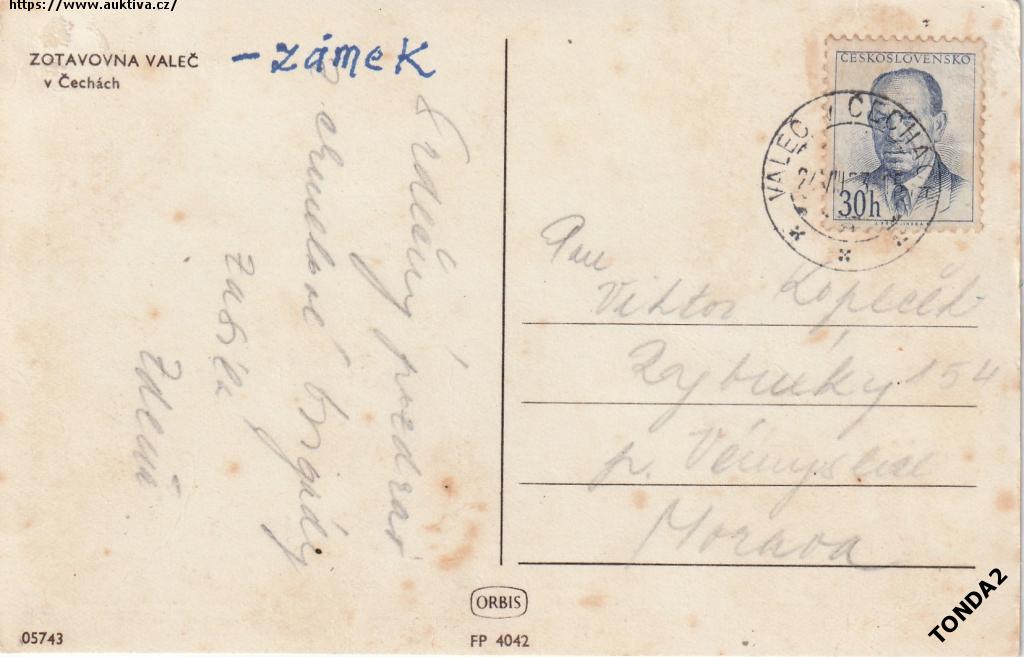 https://www.auktiva.cz/
ZOTAVOVNA VALEČ
v Čechách
-zámek
Srdečný pozdrav
z chmelové brigády
zasílá
Zdeně
ČESKOSLOVENSKO
30h
VALEČ V ČECHÁCH
Pan
Viktor Kopeček
154
p. Vémyslice
Morava
ORBIS
05743
FP 4042
TONDA2